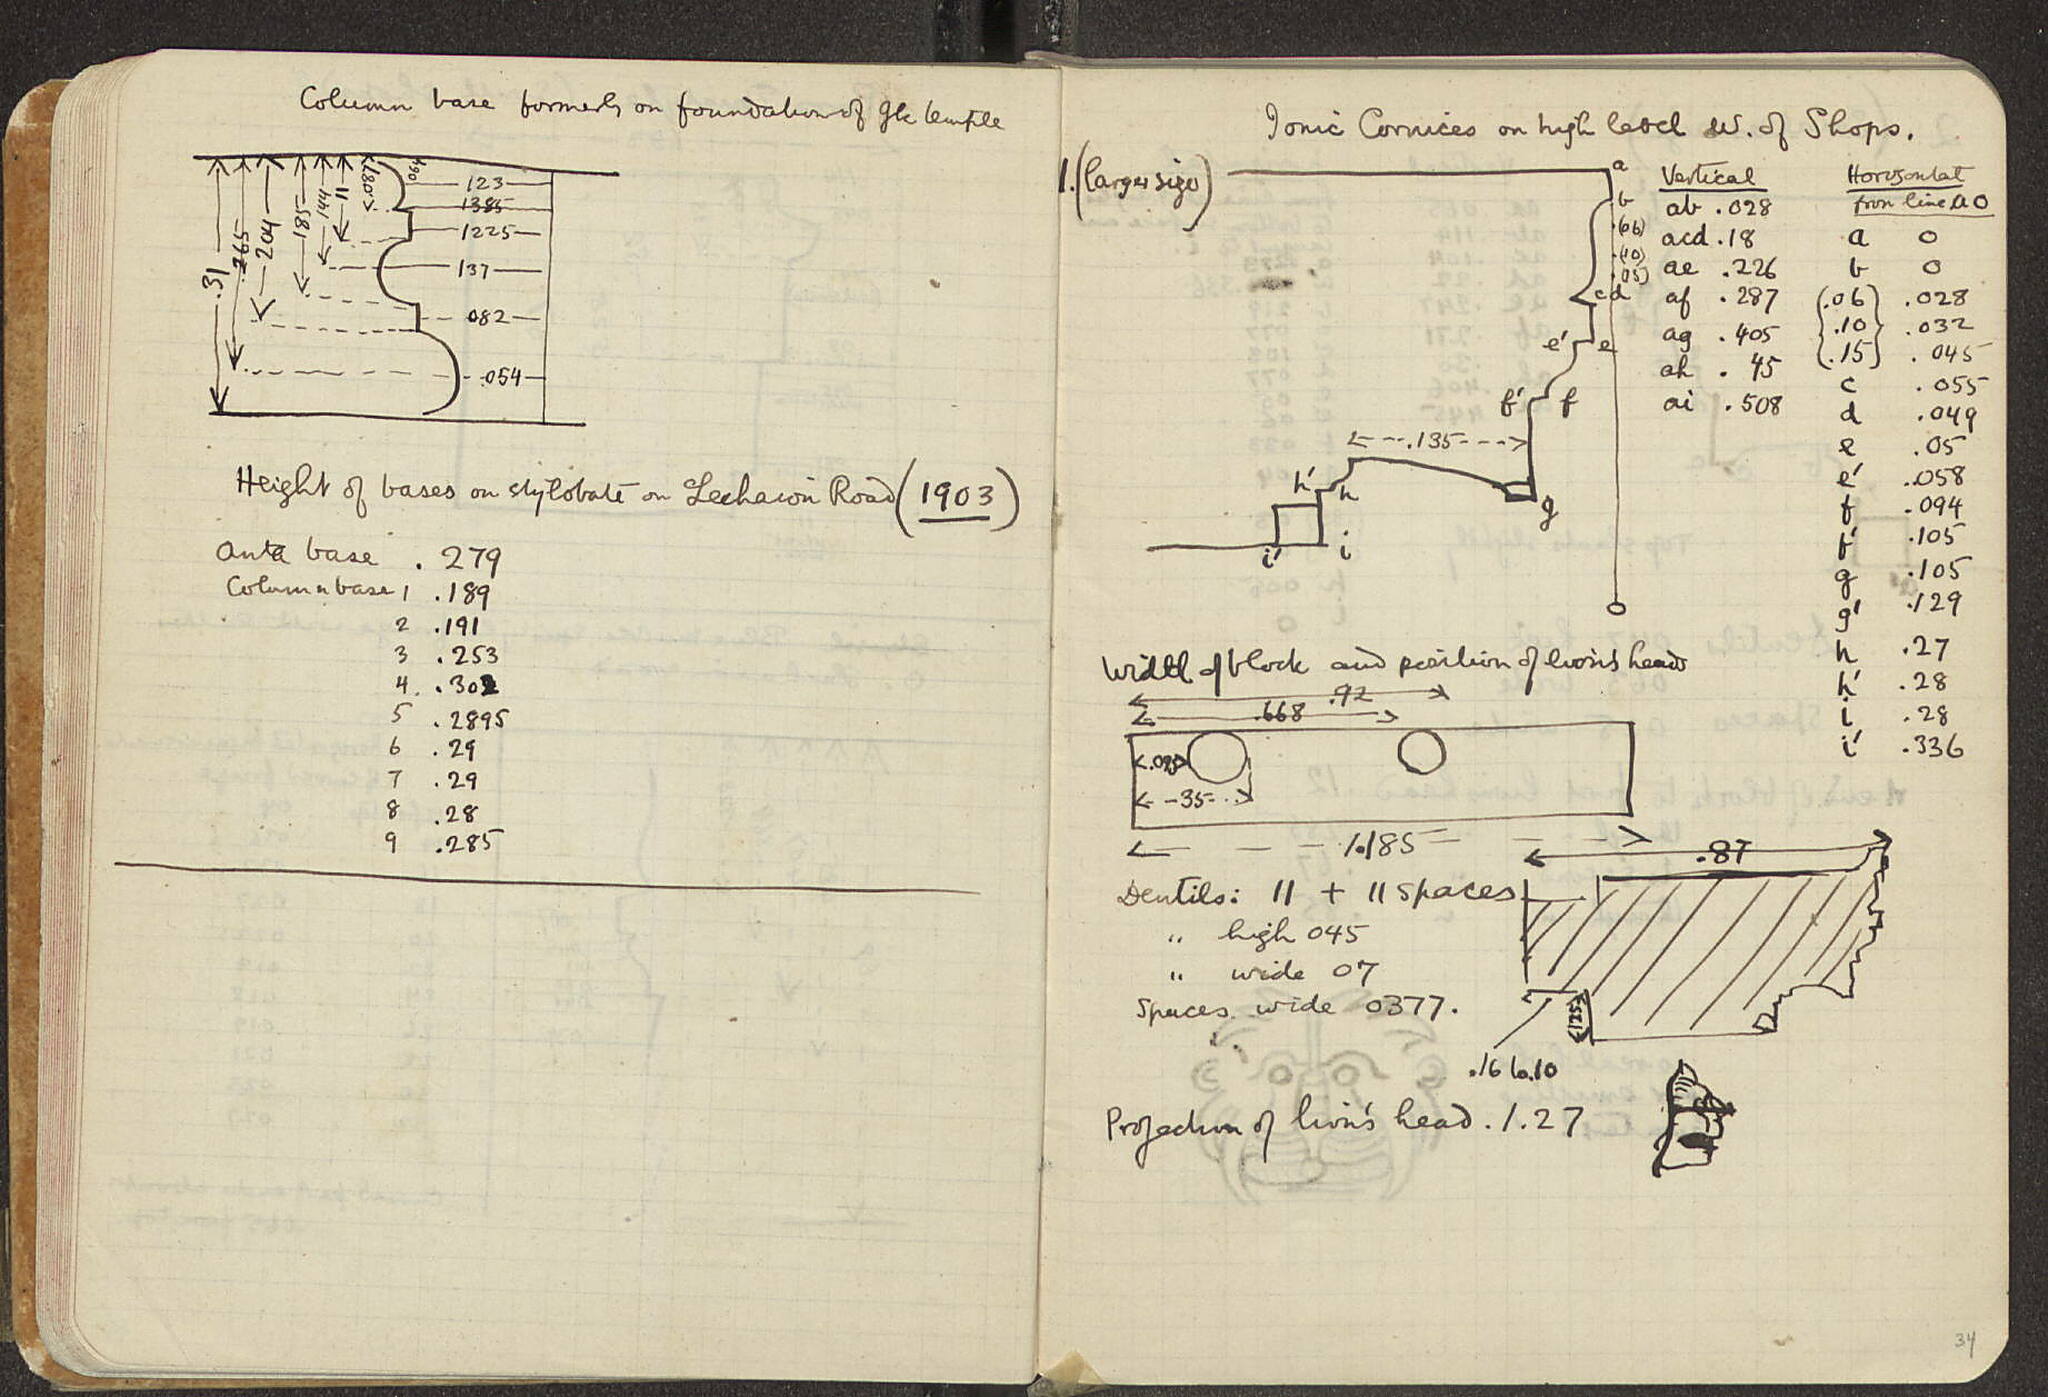 Column base formerly on foundation of gk temple
.31
.265
.204
.185
.144
.11
.087
.040
.123
.1385
.1225
.137
.082
.054
Height of bases on stylobate on Lechaion Road (1903)
Anta base .279
Column base 1 .189
2 .191
3 .253
4 .302
5 .2895
6 .29
7 .29
8 .28
9 .285
Ionic Cornices on high level W. of Shops.
1. (larger size)
a
b
(06)
(10)
(15)
c d
e' e
f' f
.135
h' h
g
i' i
Vertical
ab .028
acd .18
ae .226
af .287
ag .405
ah .45
ai .508
Horizontal
from line aO
a 0
b 0
(.06) .028
{.10} .032
(.15) .045
c .055
d .049
e .05
e' .058
f .094
f' .105
g .105
g' .129
h .27
h' .28
i .28
i' .336
Width of block and position of lion's head
.92
.668
.095
.35
1.185
.87
Dentils: 11 + 11 spaces
" high 045
" wide 07
Spaces wide 0377.
.125
.16 to .10
Projection of lion's head . 1.27
34